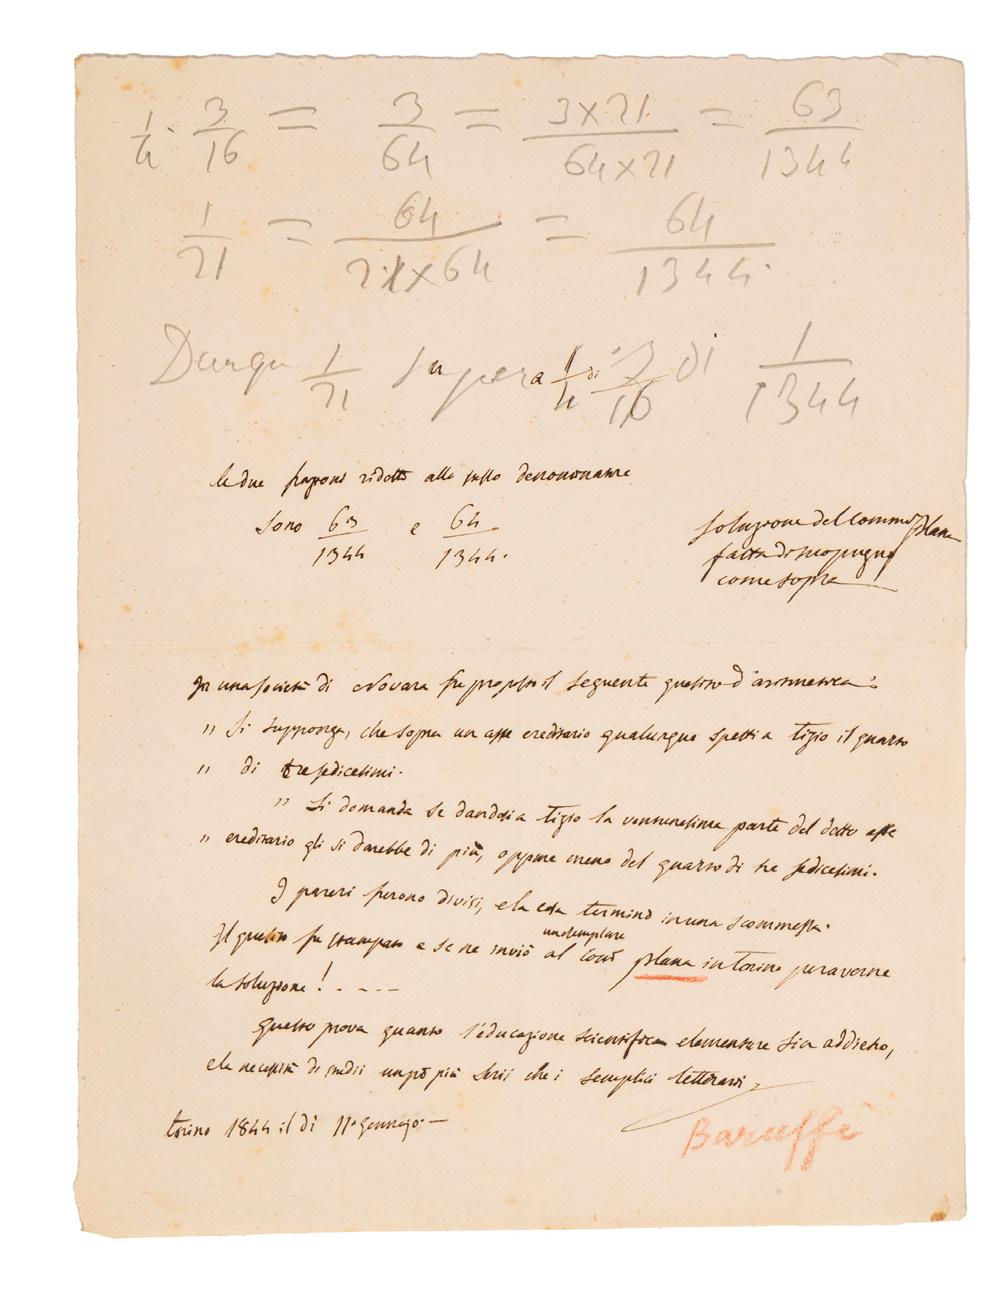 1/4 · 3/16 = 3/64 = 3×21/64×21 = 63/1344
1/21 = 64/21×64 = 64/1344.
Dunque 1/21 supera 1/4 di 3/16 di 1/1344
le due frazioni ridotte allo stesso denominatore
sono 63/1344 e 64/1344.
soluzione del Comm. Plana
fatta di suo pugno
come sopra
In una società di Novara fu proposto il seguente quesito d'aritmetica:
" Si supponga, che sopra un asse ereditario qualunque spetti a tizio il quarto
" di tre sedicesimi.
" Si domanda se dandosi a tizio la ventunesima parte del detto asse
" ereditario gli si darebbe di più, oppure meno del quarto di tre sedicesimi.
I pareri furono divisi, e la cosa terminò in una scommessa.
un esemplare
Il quesito fu stampato e se ne inviò al plana in torino per averne
la soluzione! . - - -
Questo prova quanto l'educazione scientifica elementare sia addietro,
e la necessità di studii un pò più serii che i semplici letterari,
torino 1844 il dì 11 Gennajo. —
Baruffi